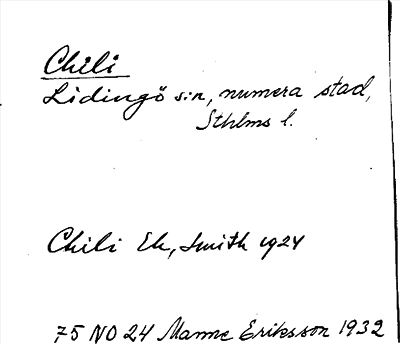 Chili
Lidingö s:n, numera stad,
Sthlms l.
Chili Ek, Smith 1924
75 NO 24 Manne Eriksson 1932